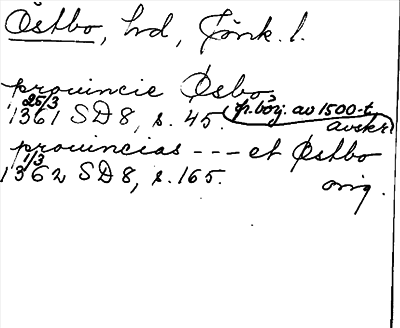 Östbo, hd, Jönk. l.
prouincie Øsbo
25/3
1361 SD 8, s. 45. (p. börj. av 1500-t.
avskr.)
prouincias --- et Østbo
1/3
1362 SD 8, s. 165. orig.